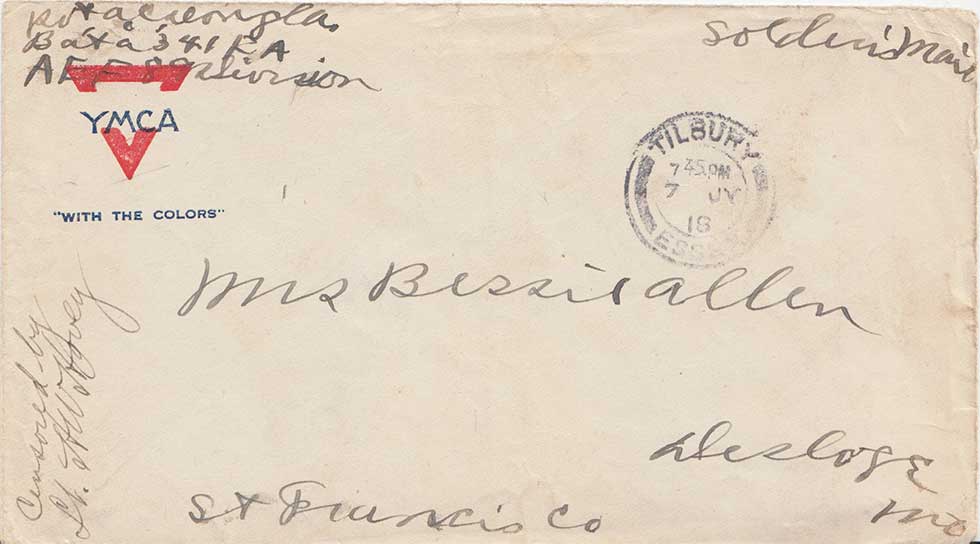 Bat a 341 F A
A E F 89 Division
Soldier's Mail
YMCA
"WITH THE COLORS"
TILBURY
7 45 PM
7 JY
18
ESSEX
Mrs Bessie Allen
Desloge
St Francis Co
Mo
Censored by
Lt. A W Hovey